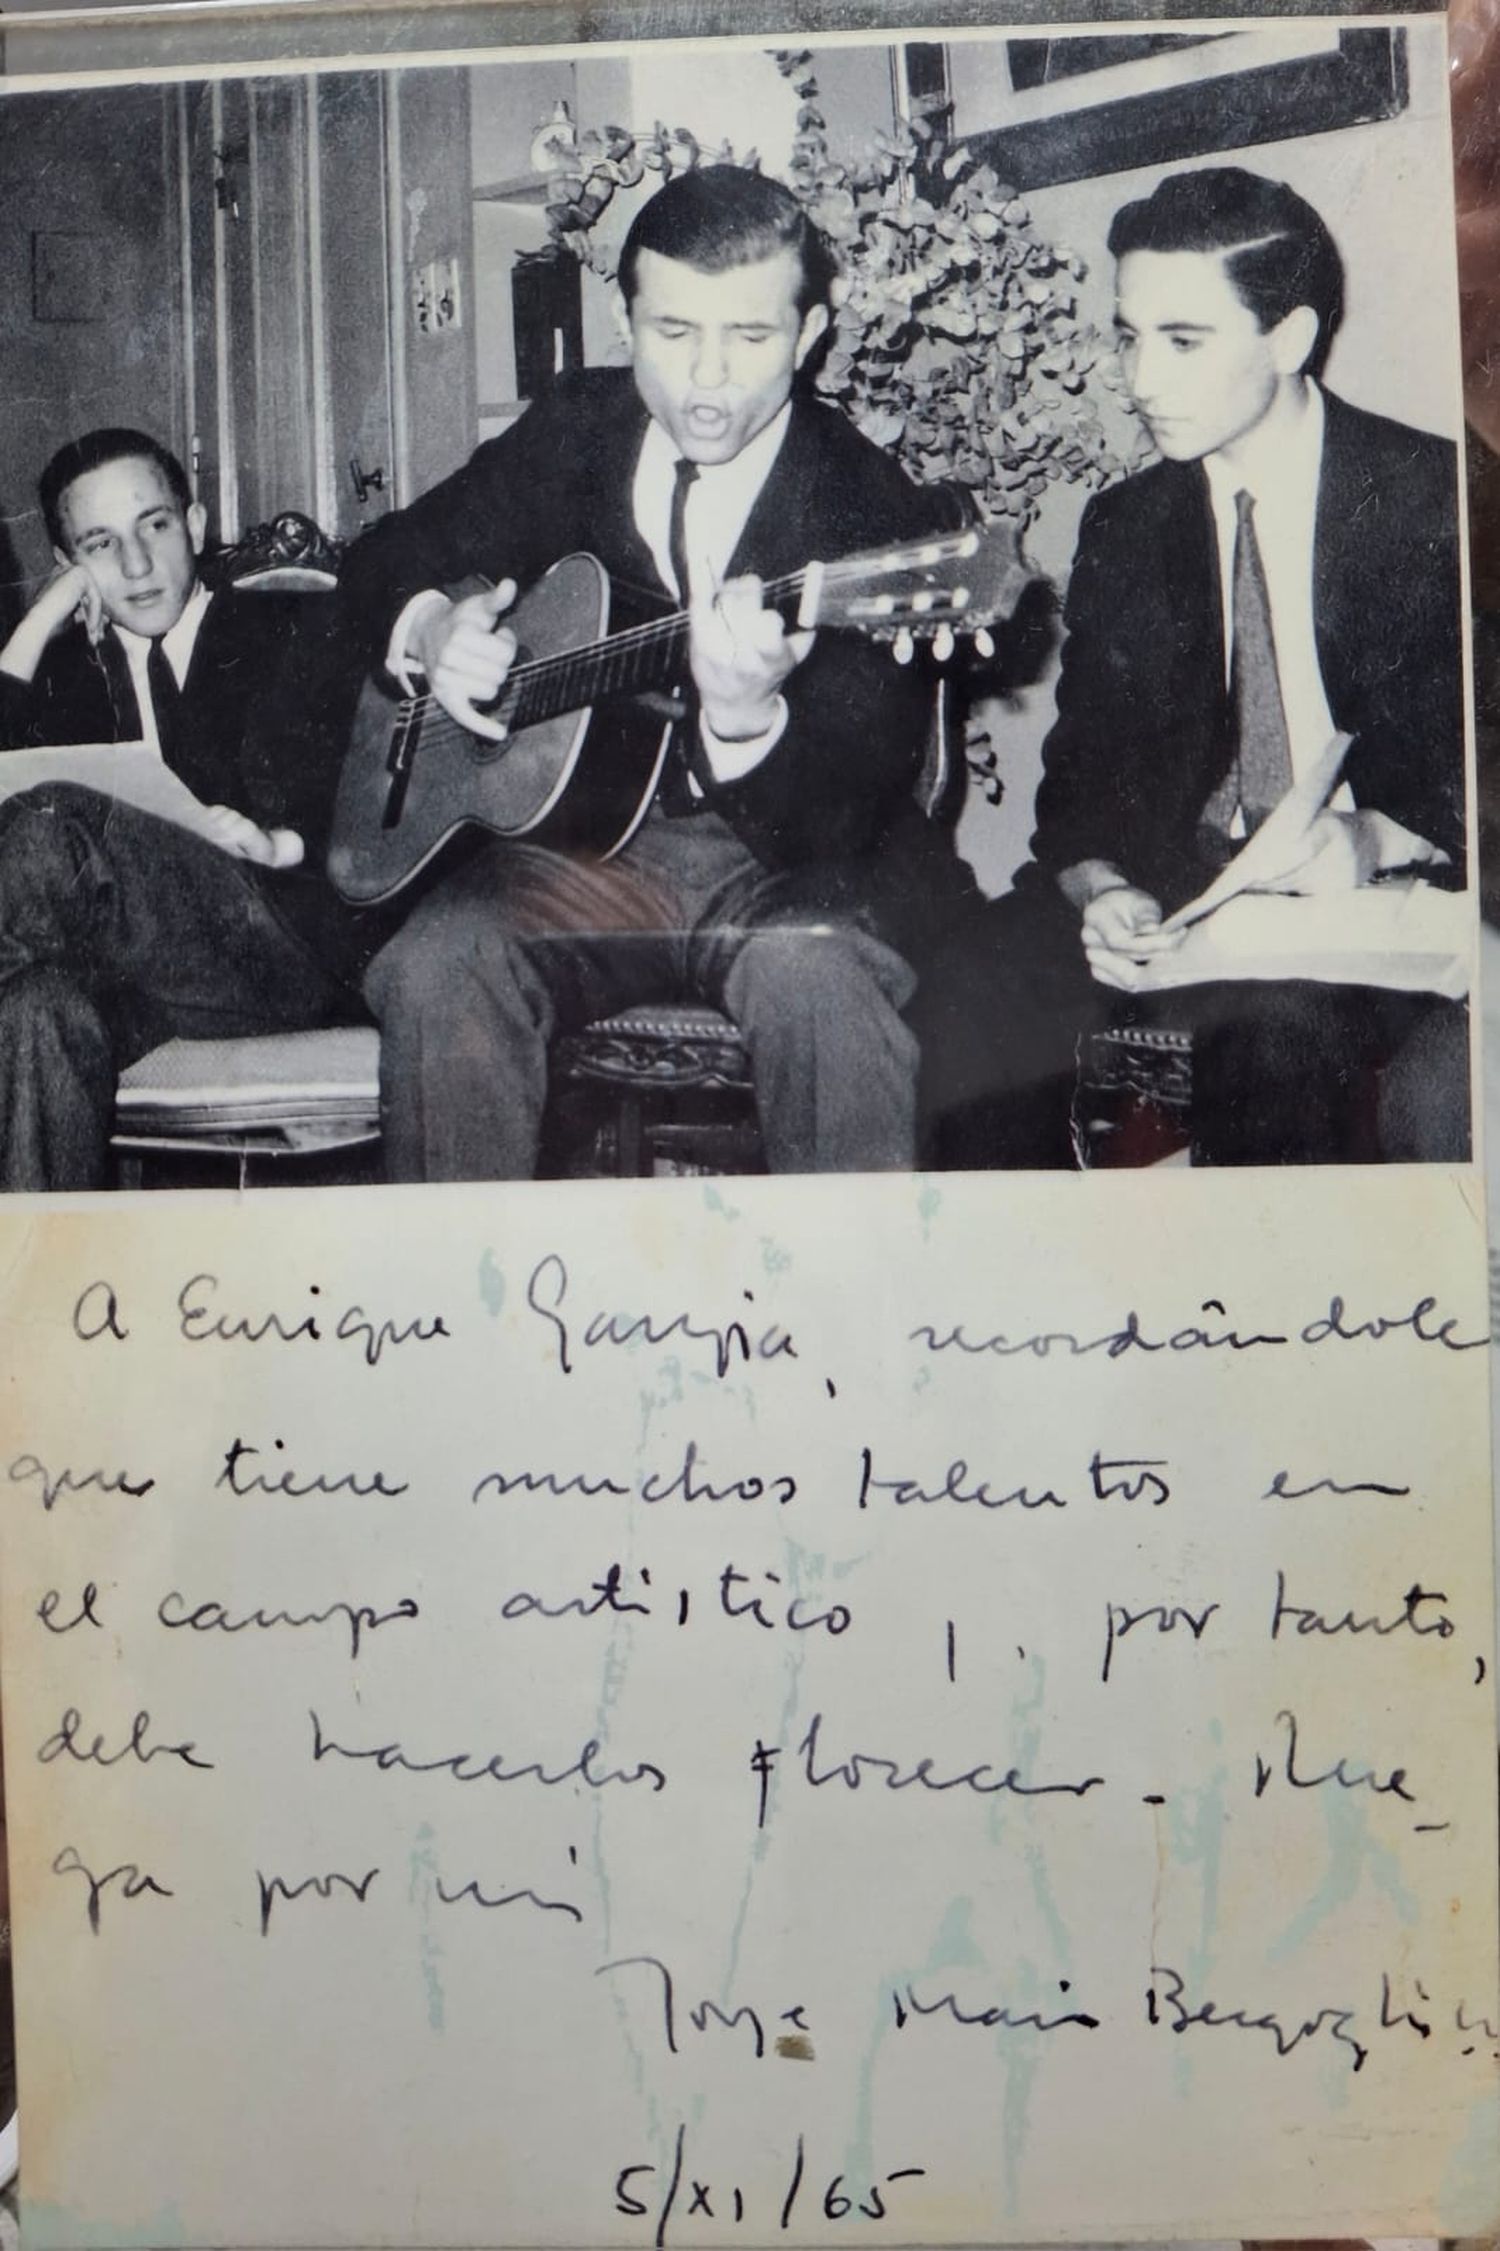 A Enrique Garrzia, recordándole
que tiene muchos talentos en
el campo artístico, por tanto,
debe hacerlos florecer. Rue-
ga por mí
Jorge Mario Bergoglio
5/XI/65